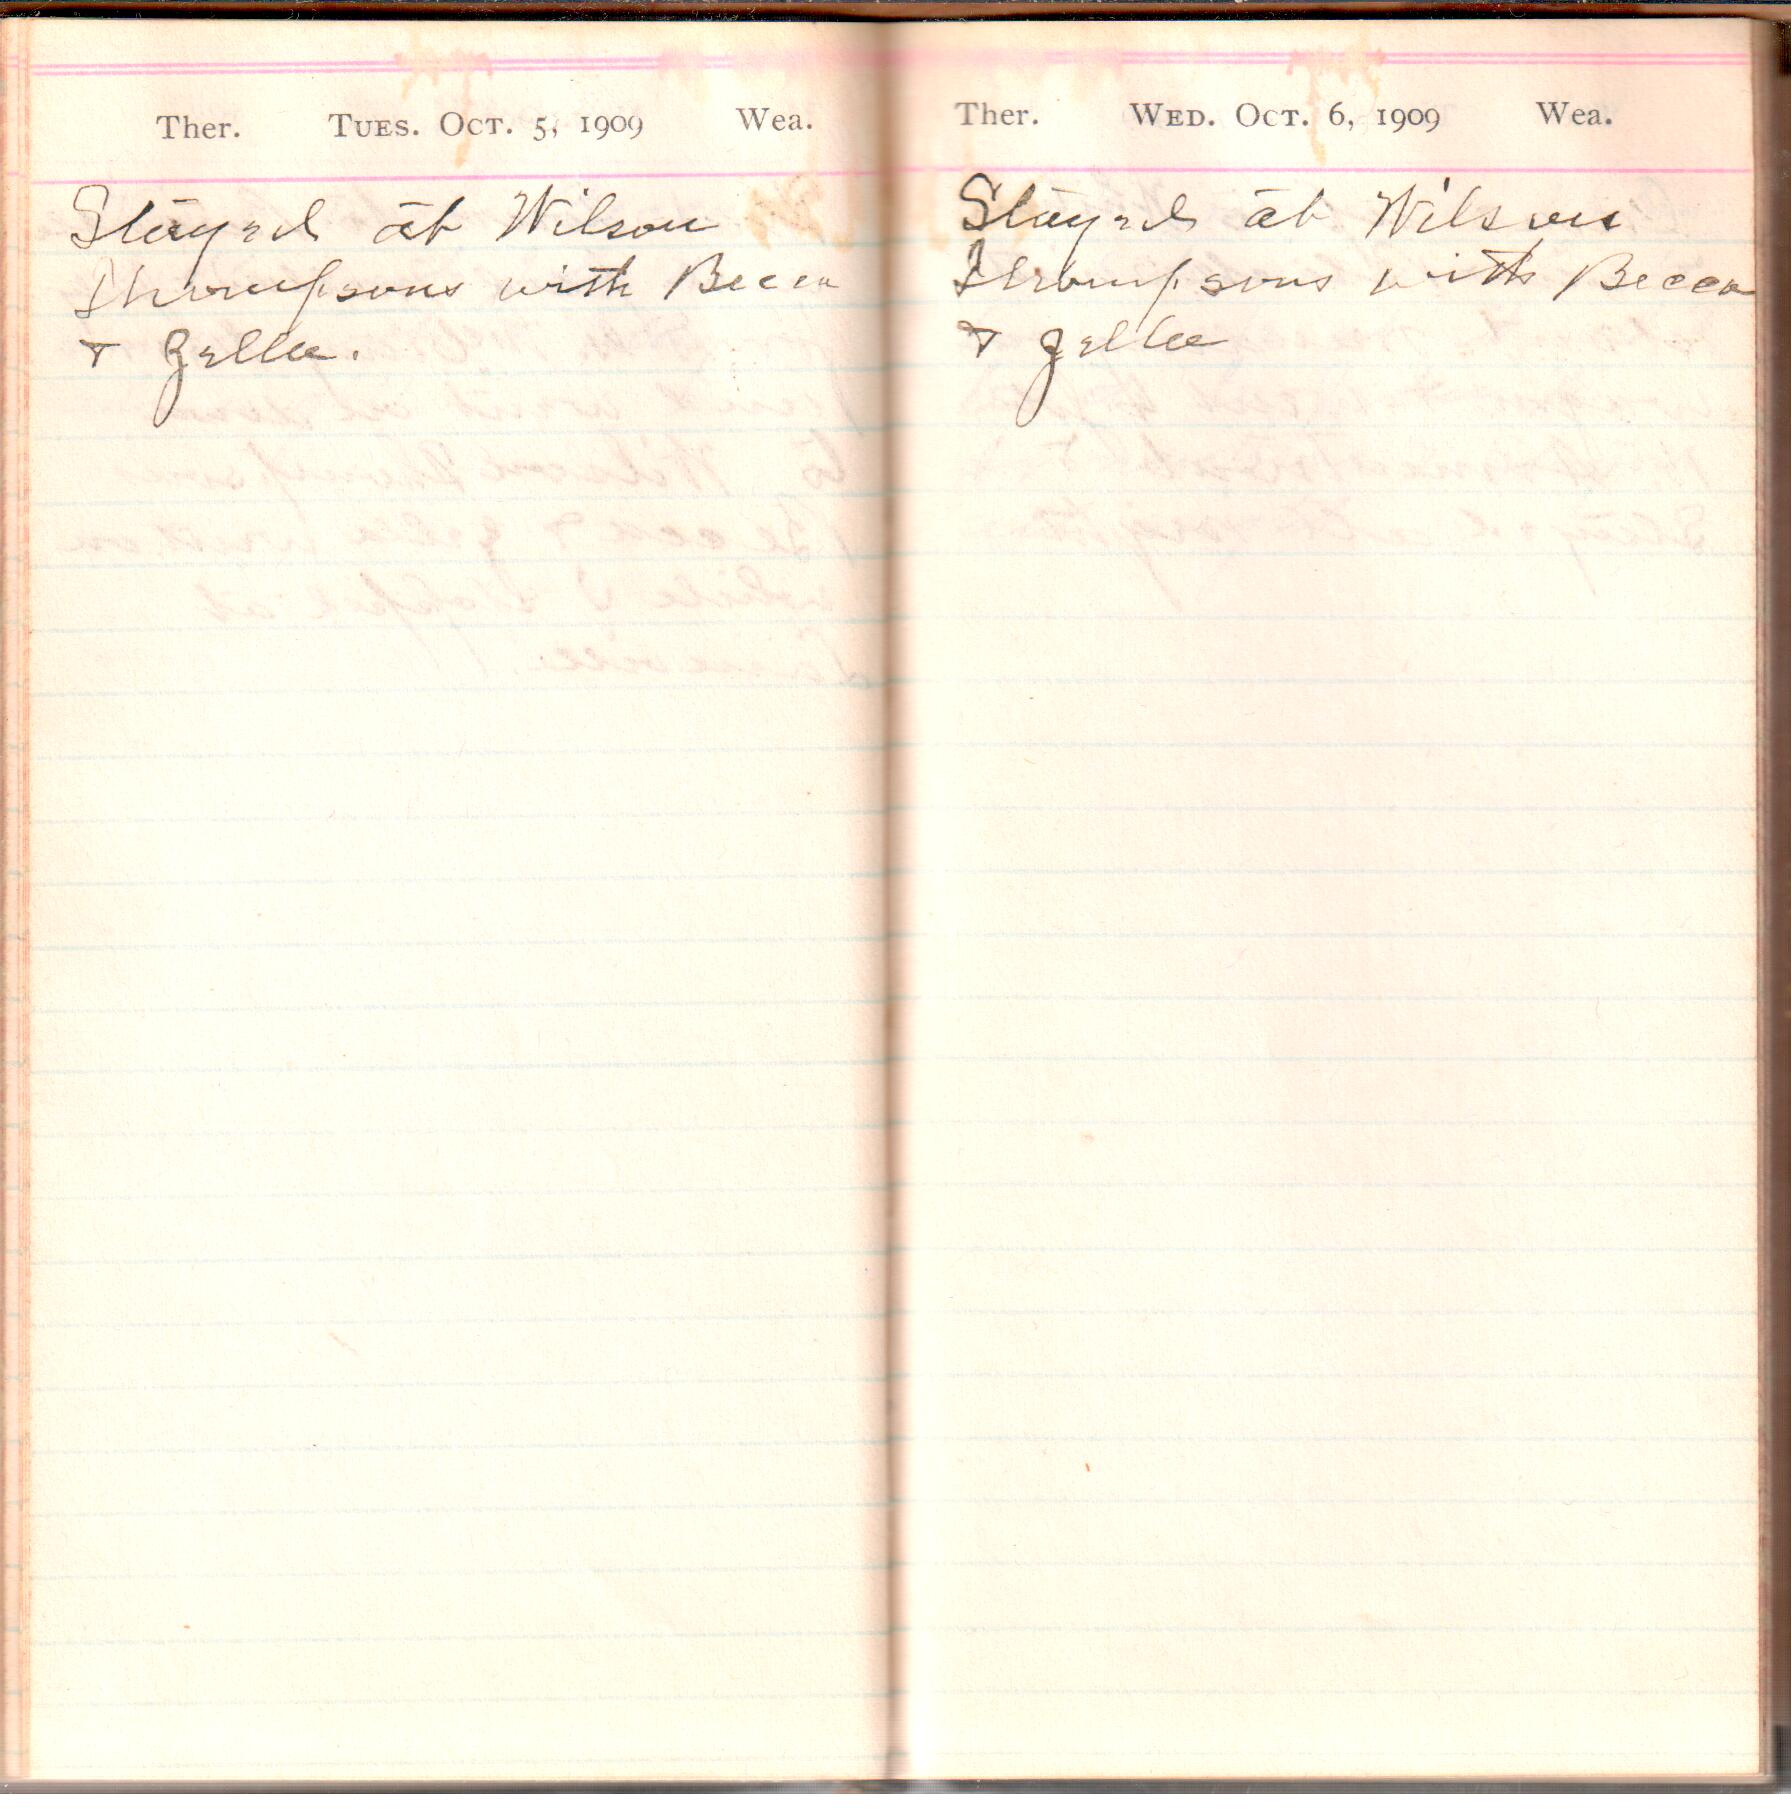 Ther. Tues. Oct. 5, 1909 Wea.
Stayed at Wilson
Thompsons with Becca
& Zella.
Ther. Wed. Oct. 6, 1909 Wea.
Stayed at Wilson
Thompsons with Becca
& Zella